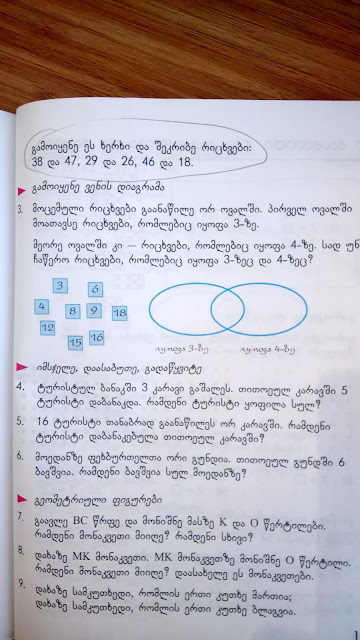 გამოიყენე ეს ხერხი და შეკრიბე რიცხვები:
38 და 47, 29 და 26, 46 და 18.
გამოიყენე ვენის დიაგრამა
3. მოცემული რიცხვები გაანაწილე ორ ოვალში. პირველ ოვალში
მოათავსე რიცხვები, რომლებიც იყოფა 3-ზე.
მეორე ოვალში კი – რიცხვები, რომლებიც იყოფა 4-ზე. სად უნ
ჩაწერო რიცხვები, რომლებიც იყოფა 3-ზეც და 4-ზეც?
3 6
4 8 9 18
12 15 16
იყოფა 3-ზე იყოფა 4-ზე
იმსჯელე, დაასაბუთე, გადაწყვიტე
4. ტურისტულ ბანაკში 3 კარავი გაშალეს. თითოეულ კარავში 5
ტურისტი დაბანაკდა. რამდენი ტურისტი ყოფილა სულ?
5. 16 ტურისტი თანაბრად გაანაწილეს ორ კარავში. რამდენი
ტურისტი დაბანაკებულა თითოეულ კარავში?
6. მოედანზე ფეხბურთელთა ორი გუნდია. თითოეულ გუნდში 6
ბავშვია. რამდენი ბავშვია სულ მოედანზე?
გეომეტრიული ფიგურები
7. გაავლე BC წრფე და მონიშნე მასზე K და O წერტილები.
რამდენი მონაკვეთი მიიღე? რამდენი სხივი?
8. დახაზე MK მონაკვეთი. MK მონაკვეთზე მონიშნე O წერტილი.
რამდენი მონაკვეთი მიიღე? დაასახელე ეს მონაკვეთები.
9. დახაზე სამკუთხედი, რომლის ერთი კუთხე მართია;
დახაზე სამკუთხედი, რომლის ერთი კუთხე ბლაგვია.